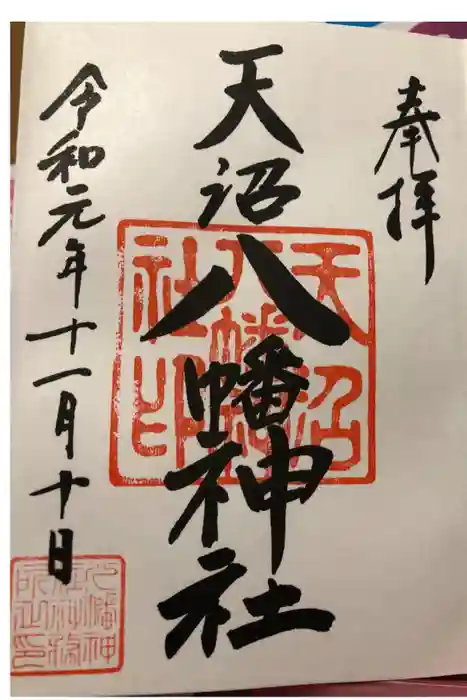 奉拝
天沼八幡神社
天沼八幡社印
令和元年十一月十日